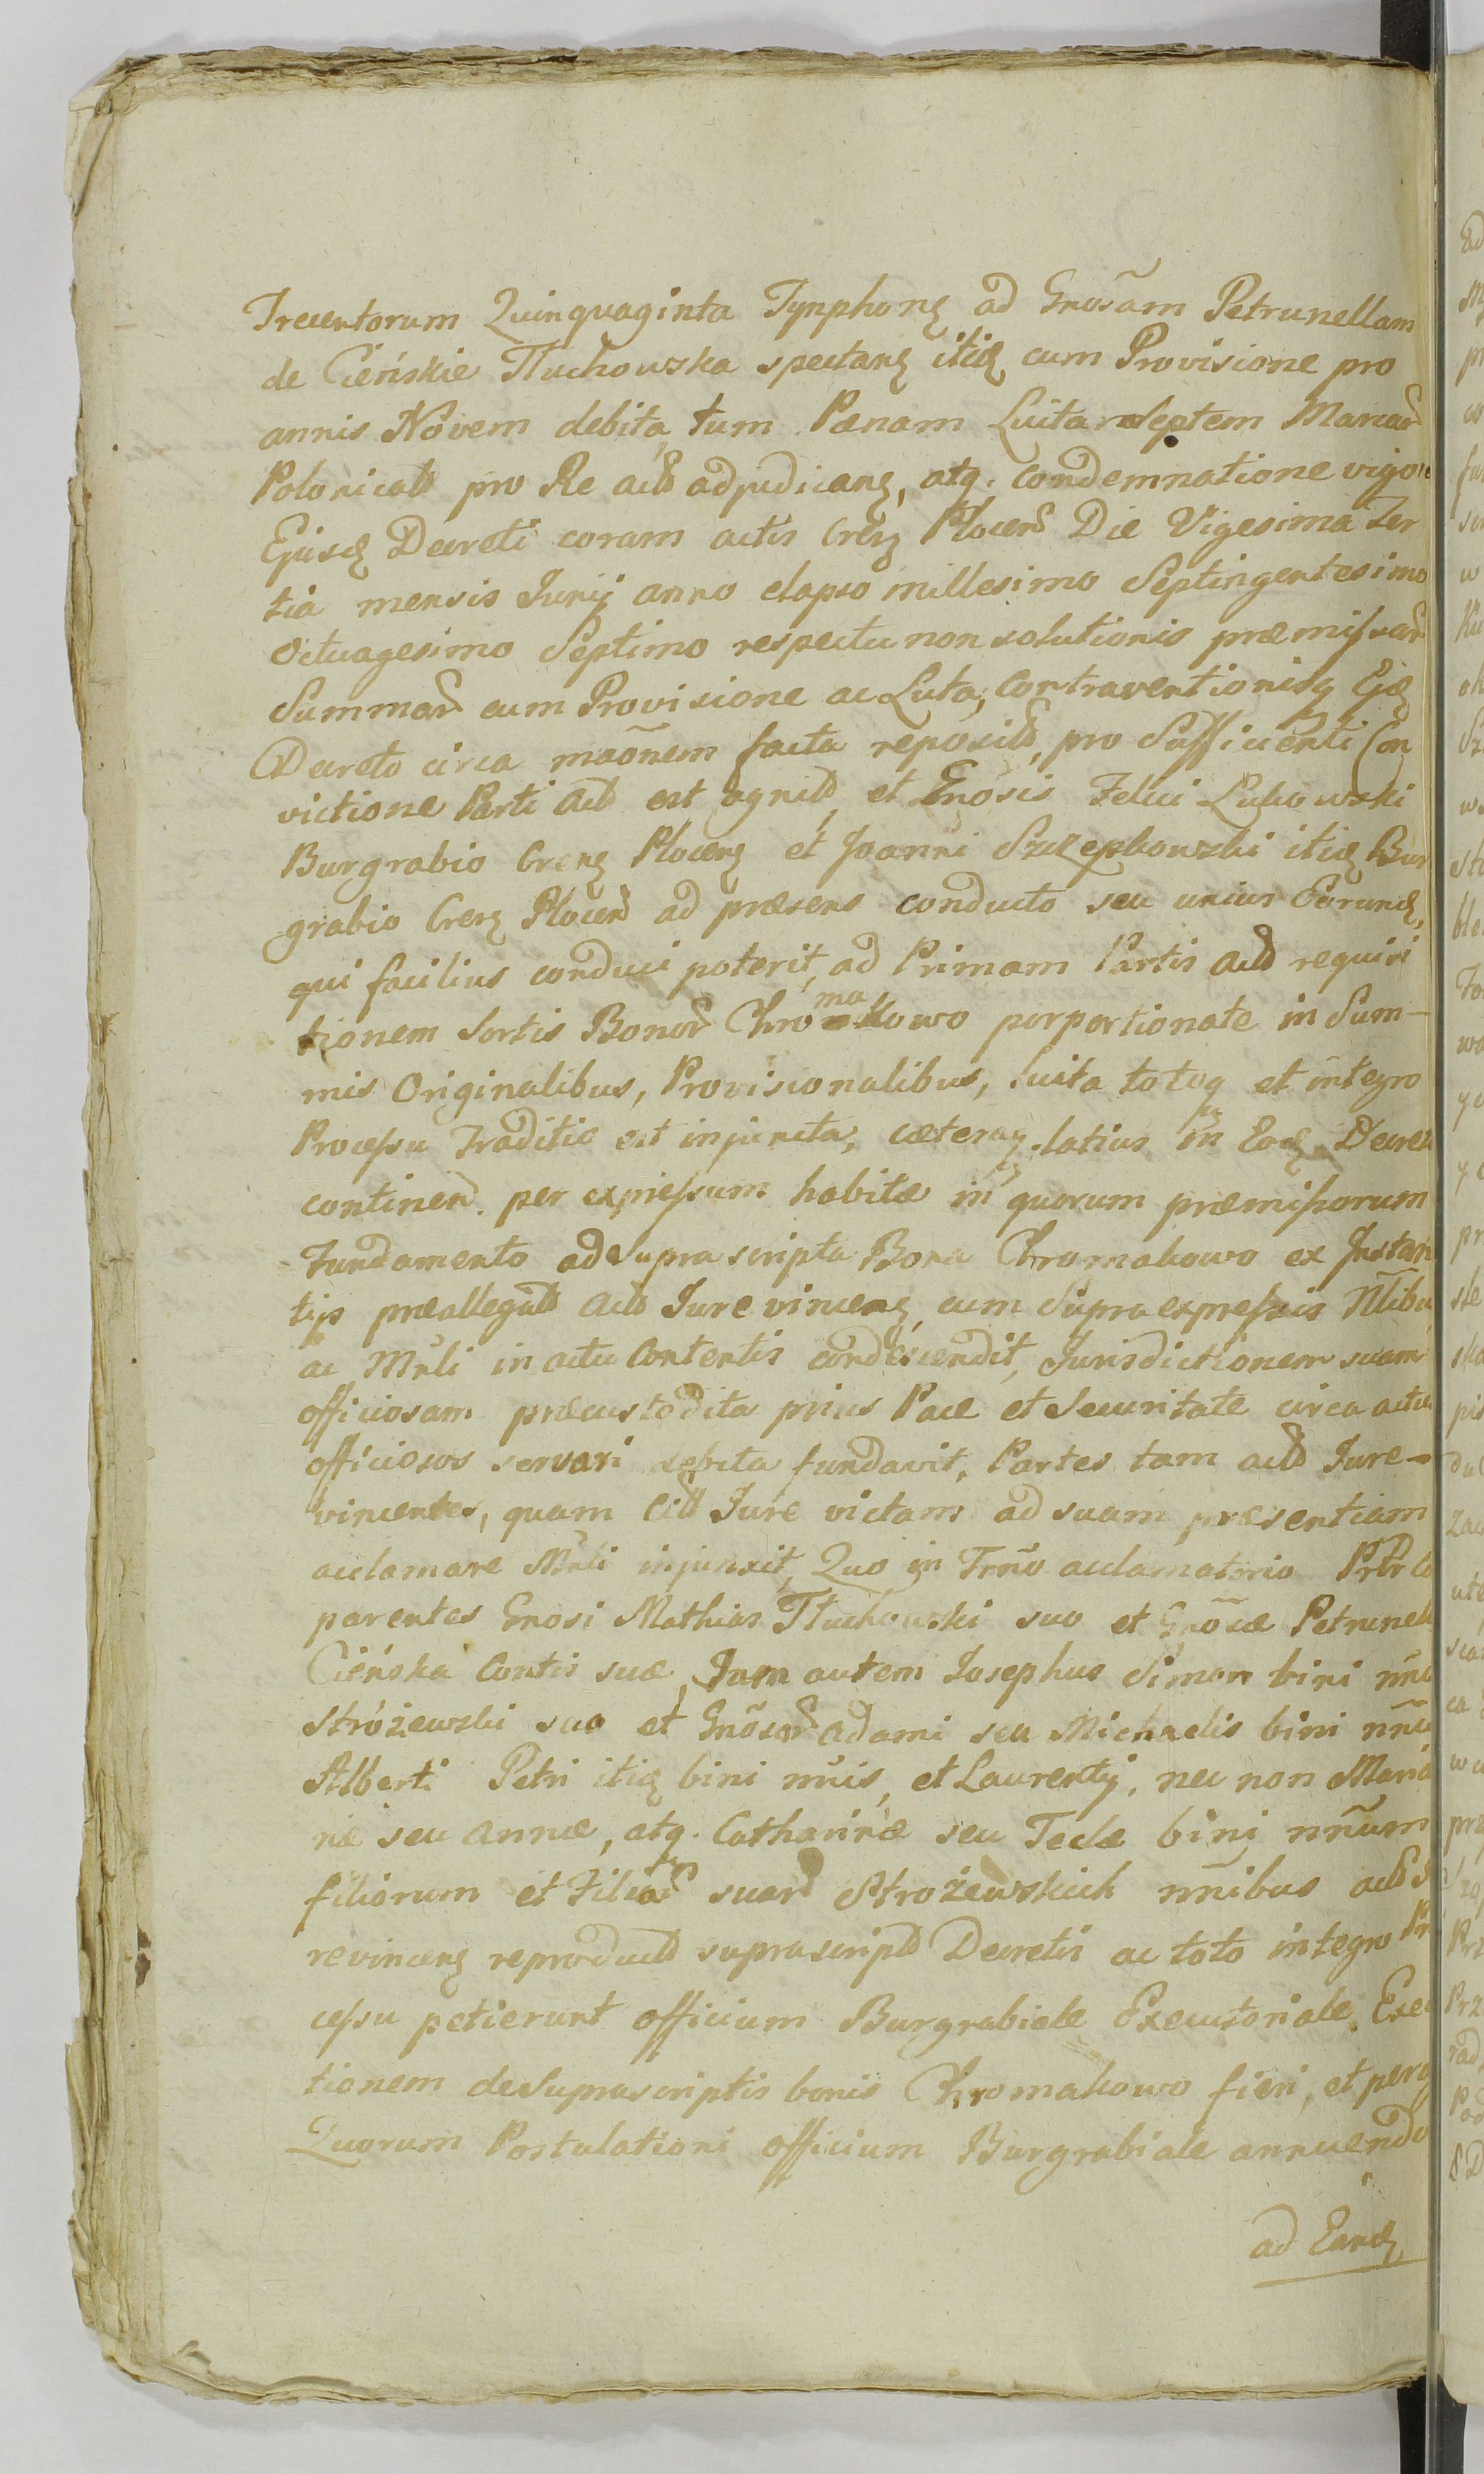 Trecentorum Quinquaginta Tynphonę ad Gnosãm Petrunellam
de Cieńskie Tłuchowska spectanę itidę cum Provisione pro
annis Novem debita, tum Pænam Luita Septem Marcar
Polonicalb pro Re actb adjudicanę, atq. Condemnatione vigore
Ejusdę Decreti coram actis Crenę Plocens Die Vigesima Ter
tia mensis Junij anno elapso millesimo Septingentesimo
Octuagesimo Septimo respectu non solutionis præmissar
Summar cum Provisione ac Luta, Contraventionisq Ejdę
Decreto circa maõnem facta reposita, pro Sufficienti Con
victione Parti Actb est agnitb, et Gnosis Felici Lukowski
Burgrabio Crenę Plocenę et Joanni Szczepkowski itidę Bur
grabio Crenę Plocens ad præsens conducto seu unius Eorundę,
qui facilius conduci poterit, ad Primam Partis actb requisi
tionem Sortis Bonor Chromakowo porportionate in Sum-
mis Originalibus, Provisionalibus, Luita totoq et integro
Processu Traditio est injuncta, cæteraq. latius in Eodę Decreto
continen. per expressum habitæ in quorum præmissorum
Fundamento ad supra scripta Bona Chromakowo ex Instan
tijs præallegatb actb Jure vincenę, cum Supra expressis Nlibus
ac Mrli in actu Contentis condescendit, Jurisdictionem suam
officiosam præcustodita prius Pace et Securitate circa actus
officiosos servari debita fundavit, Partes tam actb Jure-
vincentes, quam Citb Jure victam ad suam præsentiam
acclamare Mrli injunxit, Quo in Trño acclamatorio
parentes Gnosi Mathias Tłuchowski suo et Gnõsæ Petrunel
Cieńska Contis suæ, Jam autem Josephus Simon bini nñis
Stróżewski suo et Gnõsor Adami seu Michaelis bini nñis
Alberti Petri itidę bini nñis, et Laurentij, nec non Maria
næ seu Annæ, atq. Catharinæ seu Teclæ bini nñum
filiorum et Filiar suar Strożewskich nñibus actb Ju
revincenę reproductb suprascriptb Decretis ac toto integro Pro
cessu petierunt officium Burgrabiale Executoriale Exe
tionem de Suprascriptis bonis Chromakowo fieri, et perag
Quorum Postulationi officium Burgrabiale annuendo
ad Eandę